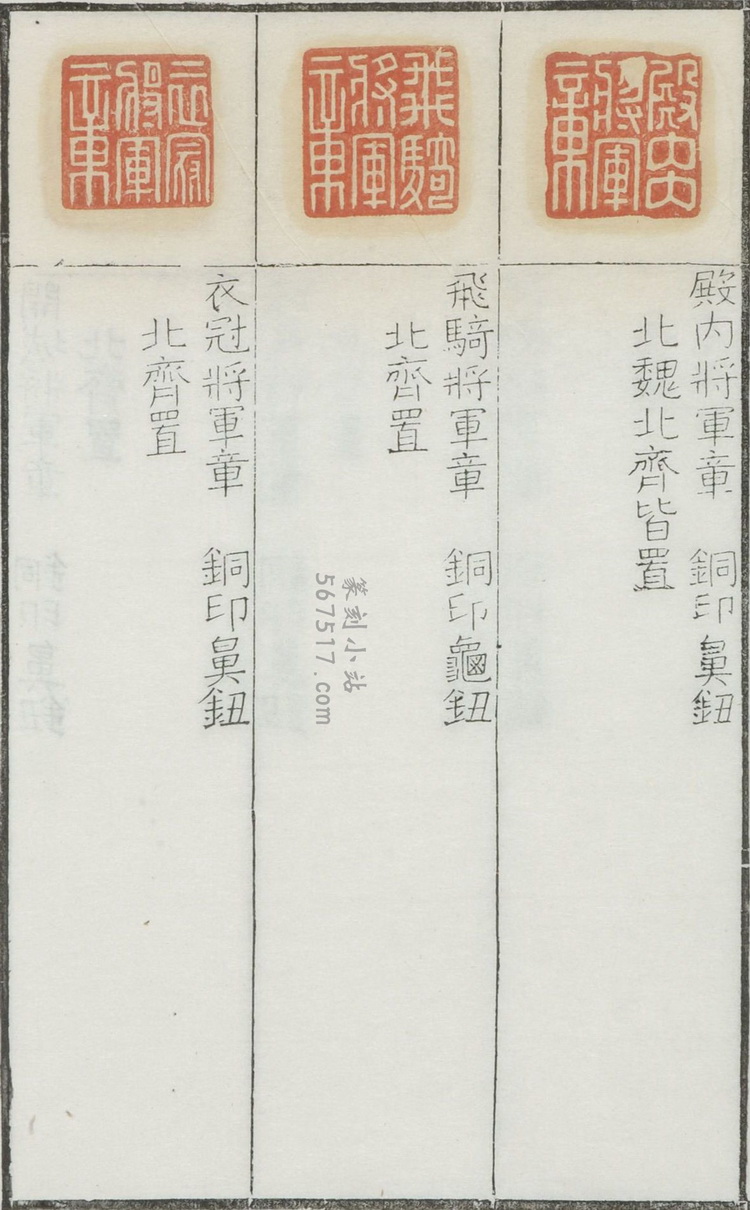 殿中將軍章
殿内將軍章　銅印鼻鈕
北魏北齊皆置
飛騎將軍章
飛騎將軍章　銅印龜鈕
北齊置
衣冠將軍章
北齊置
銅印鼻鈕
篆刻小站
567517.com